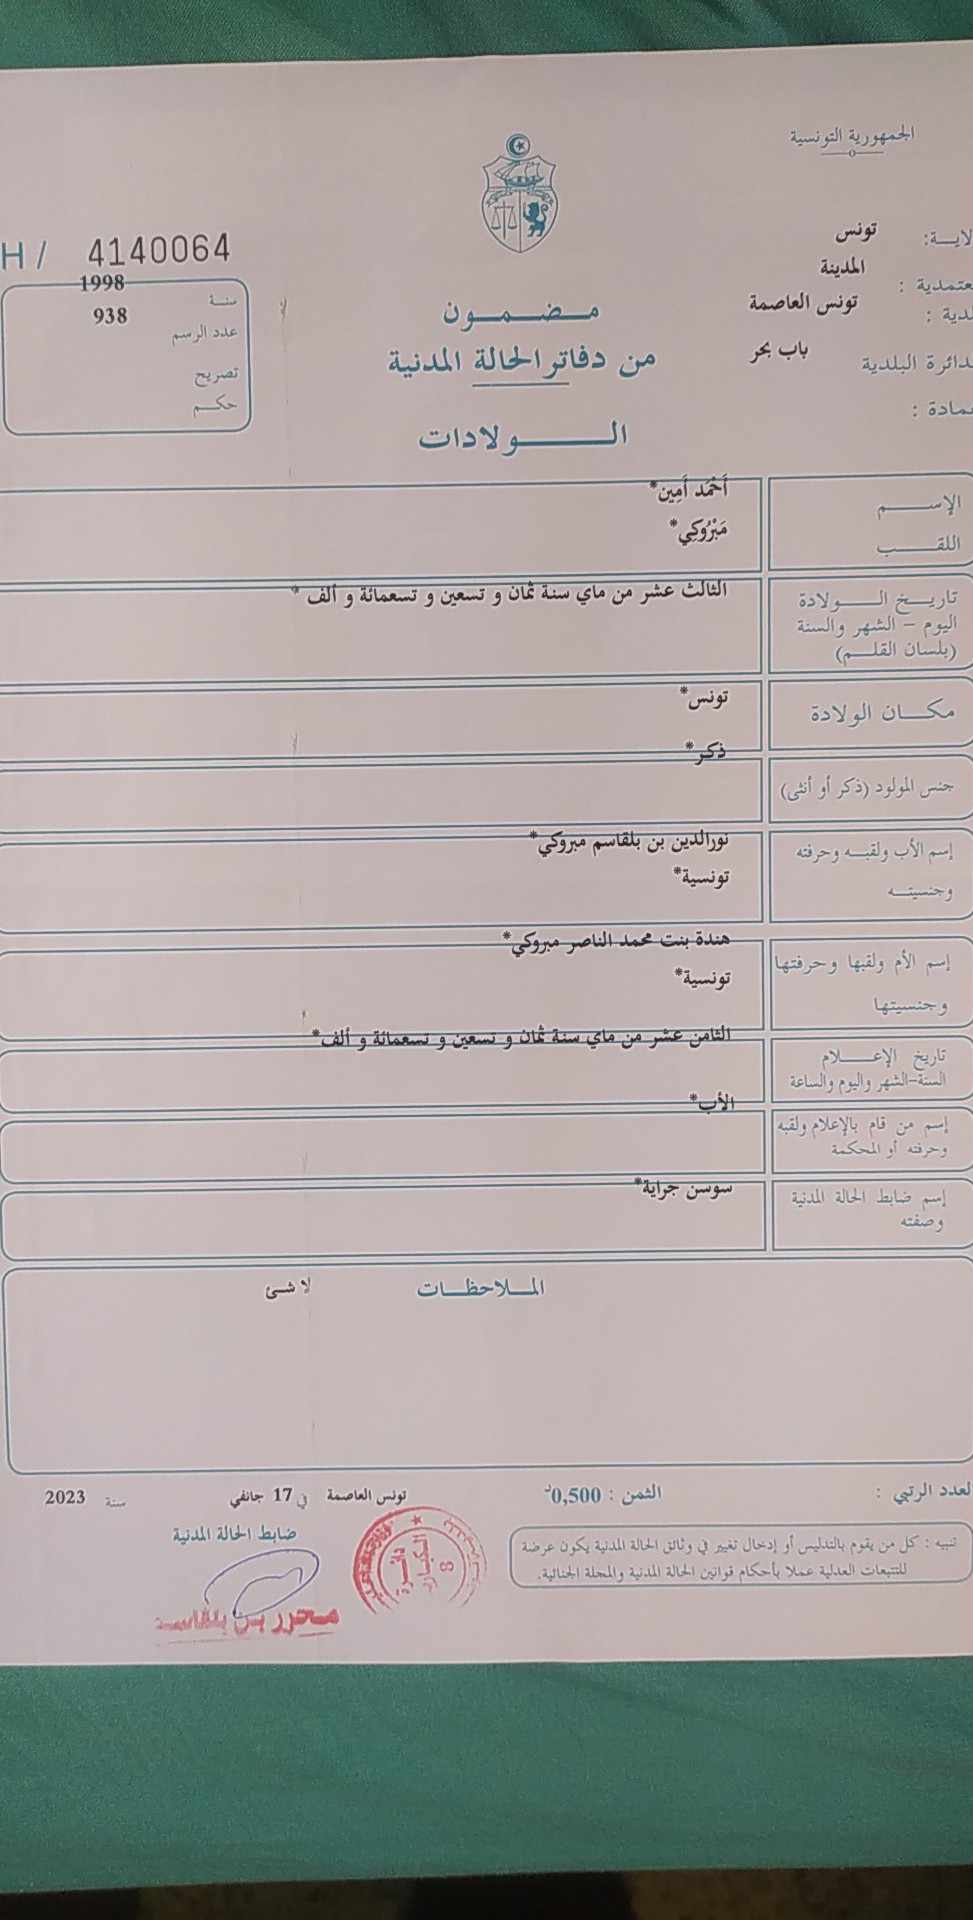 الجمهورية التونسية
لايـــة: تونس
عتمدية : المدينة
لدية : تونس العاصمة
دائرة البلدية باب بحر
مادة :
H / 4140064
سنة 1998
عدد الرسم 938
تصريح
حكم
مضمون
من دفاتر الحالة المدنية
الولادات
الإسم أَحْمَد أَمِين*
اللقب مَبْرُوكِي*
تاريخ الولادة
اليوم - الشهر والسنة
(بلسان القلم)
الثالث عشر من ماي سنة ثمان و تسعين و تسعمائة و ألف *
مكان الولادة تونس*
جنس المولود (ذكر أو أنثى) ذكر*
إسم الأب ولقبه وحرفته نورالدين بن بلقاسم مبروكي*
وجنسيته تونسية*
إسم الأم ولقبها وحرفتها هندة بنت محمد الناصر مبروكي*
وجنسيتها تونسية*
تاريخ الإعلام
السنة-الشهر واليوم والساعة
الثامن عشر من ماي سنة ثمان و تسعين و تسعمائة و ألف*
إسم من قام بالإعلام ولقبه
وحرفته أو المحكمة
الأب*
إسم ضابط الحالة المدنية
وصفته
سوسن جراية*
الملاحظات لا شئ
لعدد الرتبي :
الثمن : 0,500د
تونس العاصمة في 17 جانفي سنة 2023
ضابط الحالة المدنية
تنبيه : كل من يقوم بالتدليس أو إدخال تغيير في وثائق الحالة المدنية يكون عرضة
للتتبعات العدلية عملا بأحكام قوانين الحالة المدنية والمجلة الجنائية.
دائرة
8
محرز بن بلقاسم